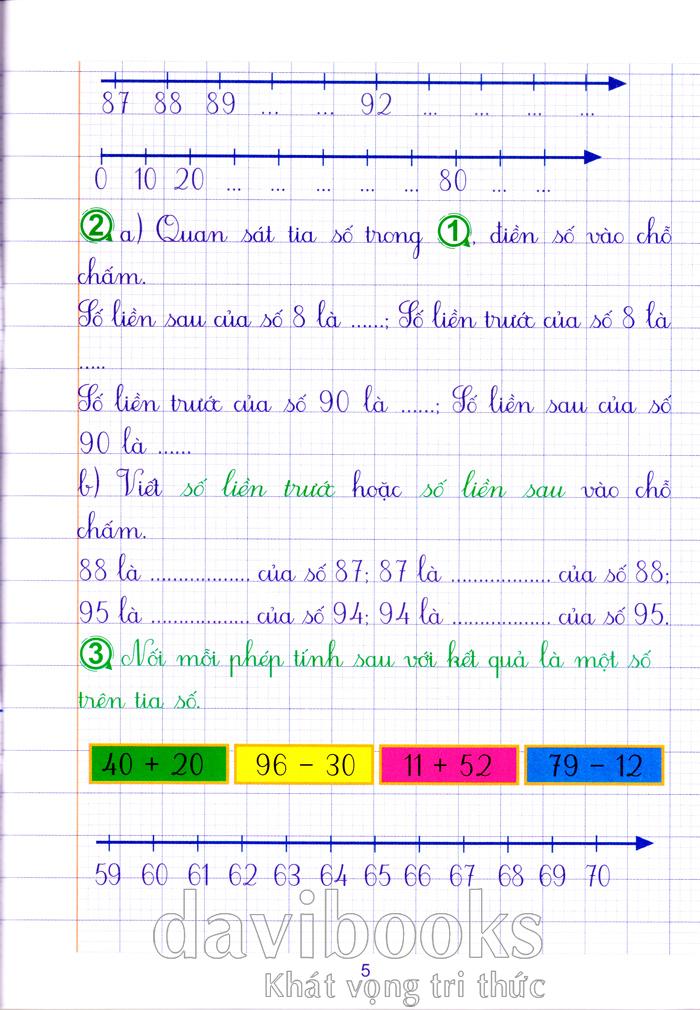 87 88 89 ... ... 92 ... ... ... ...
0 10 20 ... ... ... ... ... 80 ... ...
2 a) Quan sát tia số trong 1, điền số vào chỗ
chấm.
Số liền sau của số 8 là ......; Số liền trước của số 8 là
.....
Số liền trước của số 90 là ......; Số liền sau của số
90 là ......
b) Viết số liền trước hoặc số liền sau vào chỗ
chấm.
88 là .................. của số 87; 87 là .................. của số 88;
95 là .................. của số 94; 94 là .................. của số 95.
3 Nối mỗi phép tính sau với kết quả là một số
trên tia số.
40 + 20 96 - 30 11 + 52 79 - 12
59 60 61 62 63 64 65 66 67 68 69 70
davibooks
5
Khát vọng tri thức